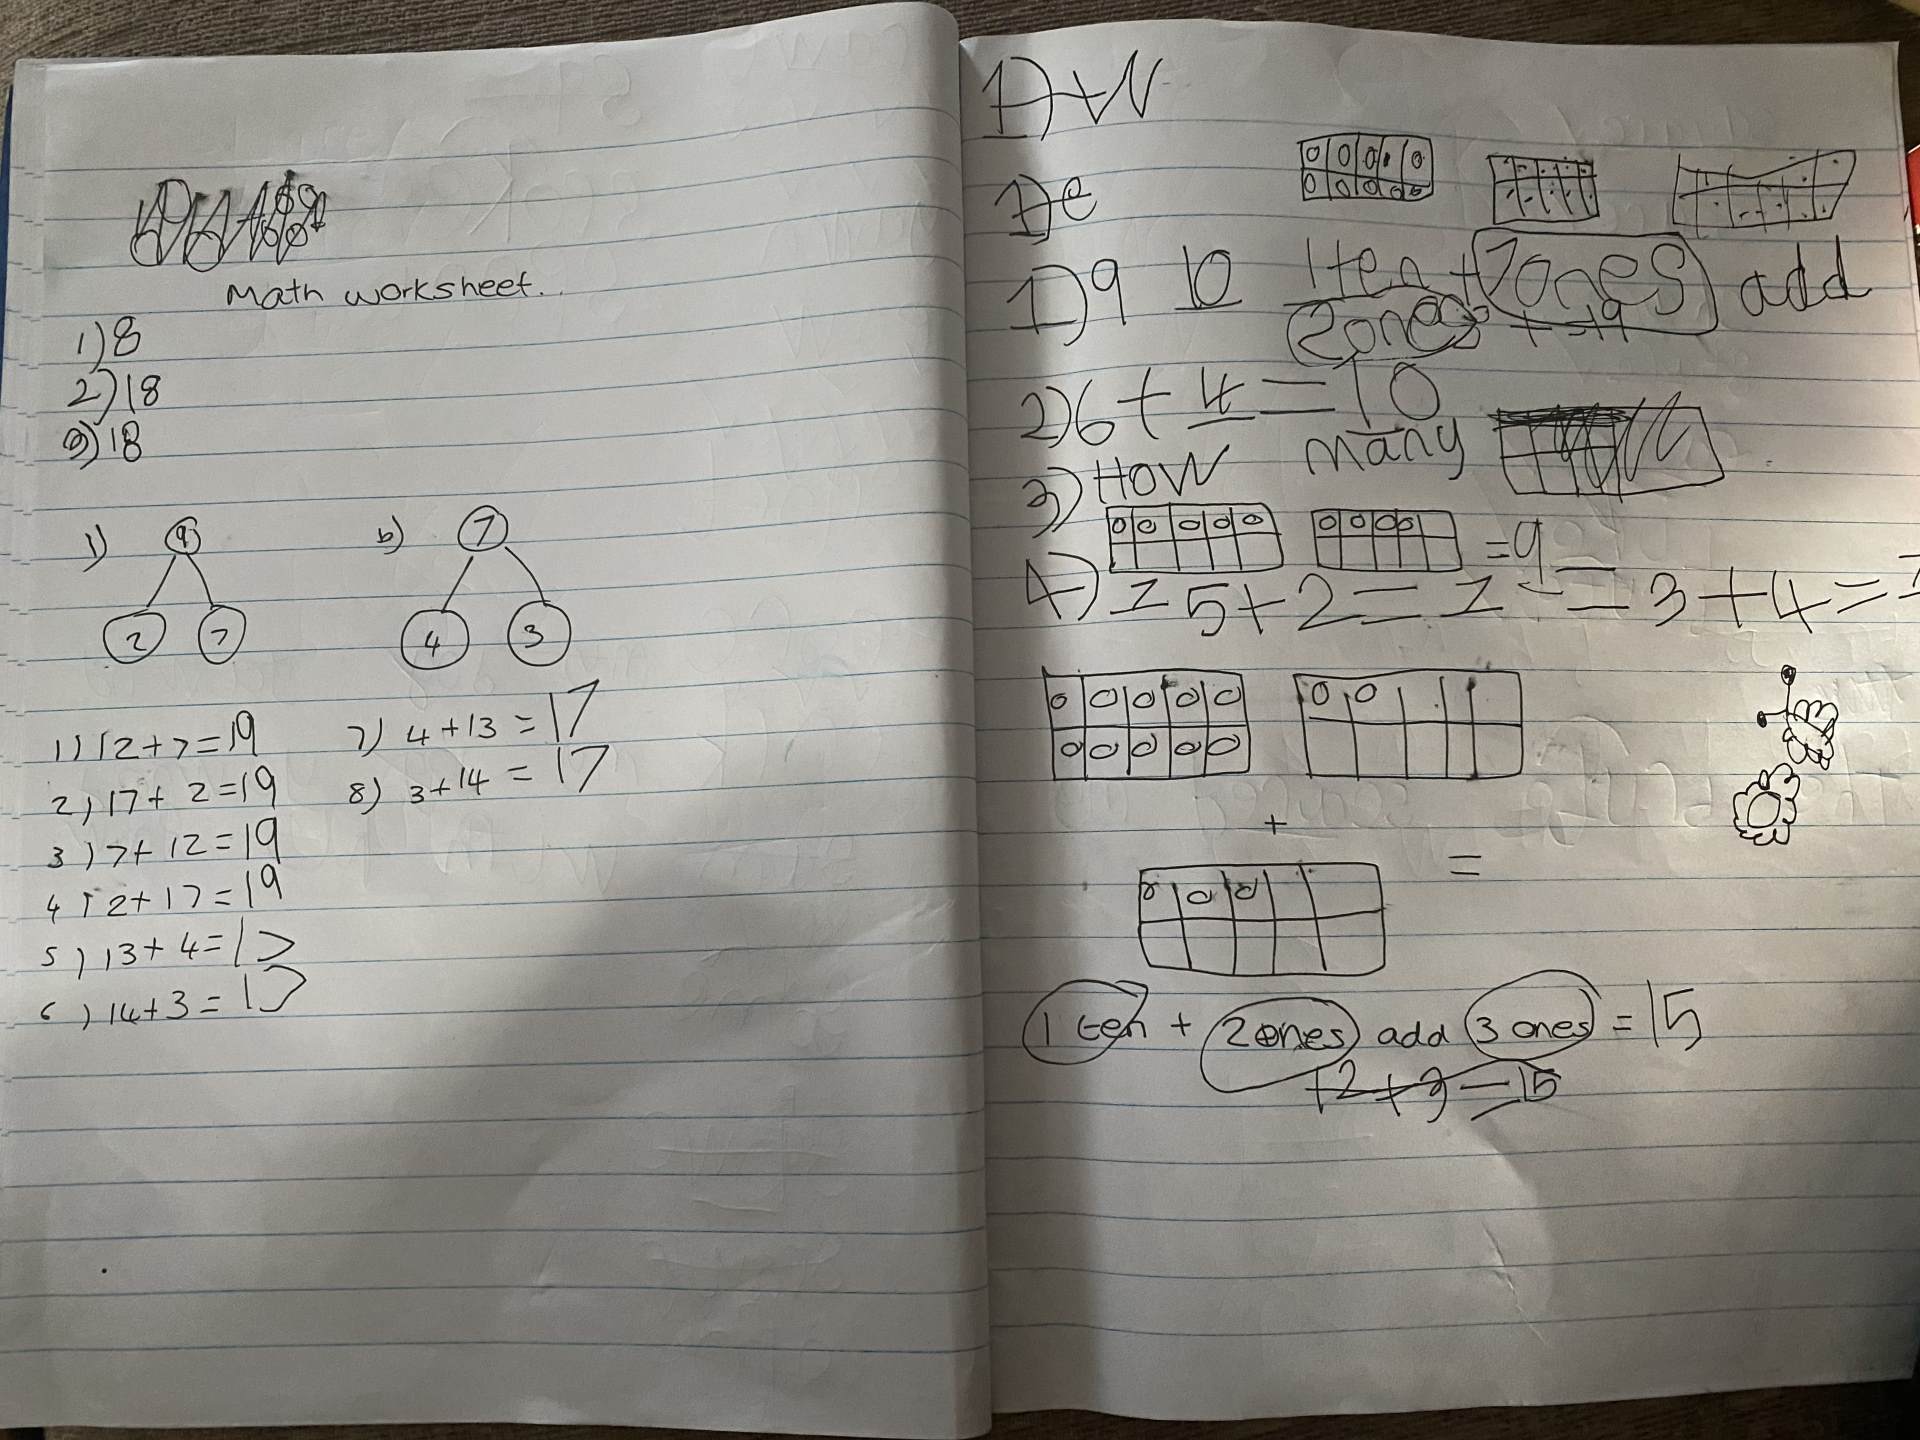 Math worksheet.
1) 8
2) 18
3) 18
1) 9 b) 7
2 7 4 3
1) 12 + 7 = 19 7) 4 + 13 = 17
2) 17 + 2 = 19 8) 3 + 14 = 17
3) 7 + 12 = 19
4) 2 + 17 = 19
5) 13 + 4 = 17
6) 14 + 3 = 17
1)
1) e
1) 9 10 1 ten + 7 ones add
2 ones = 19
2) 6 + 4 = 10
3) How many
= 9
4) 5 + 2 = = 3 + 4 =
+
=
1 ten + 2 ones add 3 ones = 15
+ 2 + 3 = 15